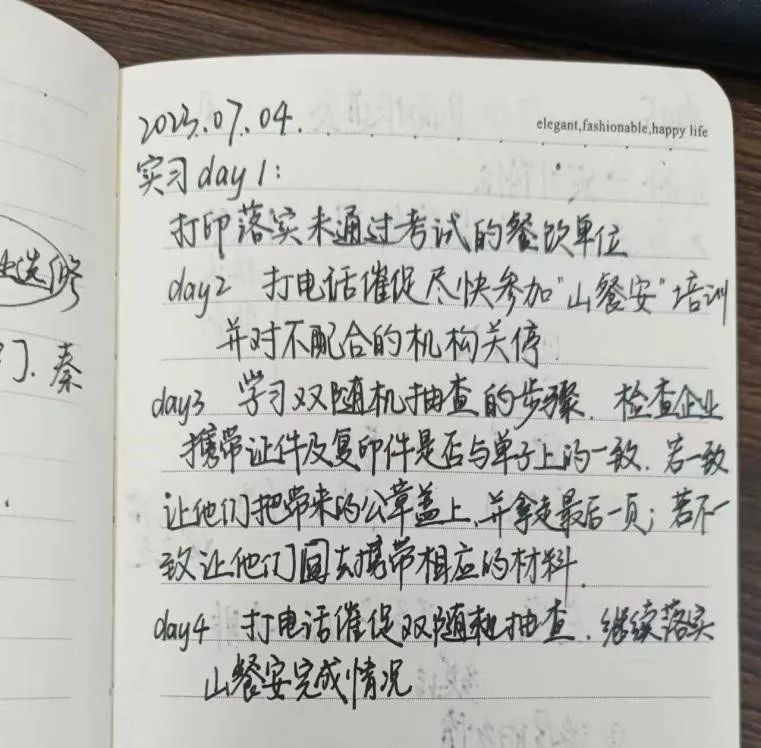 elegant,fashionable,happy life
2023.07.04.
实习day1:
打印落实未通过考试的餐饮单位
day2 打电话催促尽快参加"山餐安"培训
并对不配合的机构关停.
day3 学习双随机抽查的步骤. 检查企业
携带证件及复印件是否与单子上的一致. 若一致
让他们把带来的公章盖上,并拿走最后一页; 若不一
致让他们回去携带相应的材料.
day4 打电话催促双随机抽查. 继续落实
山餐安完成情况
选修
门. 秦